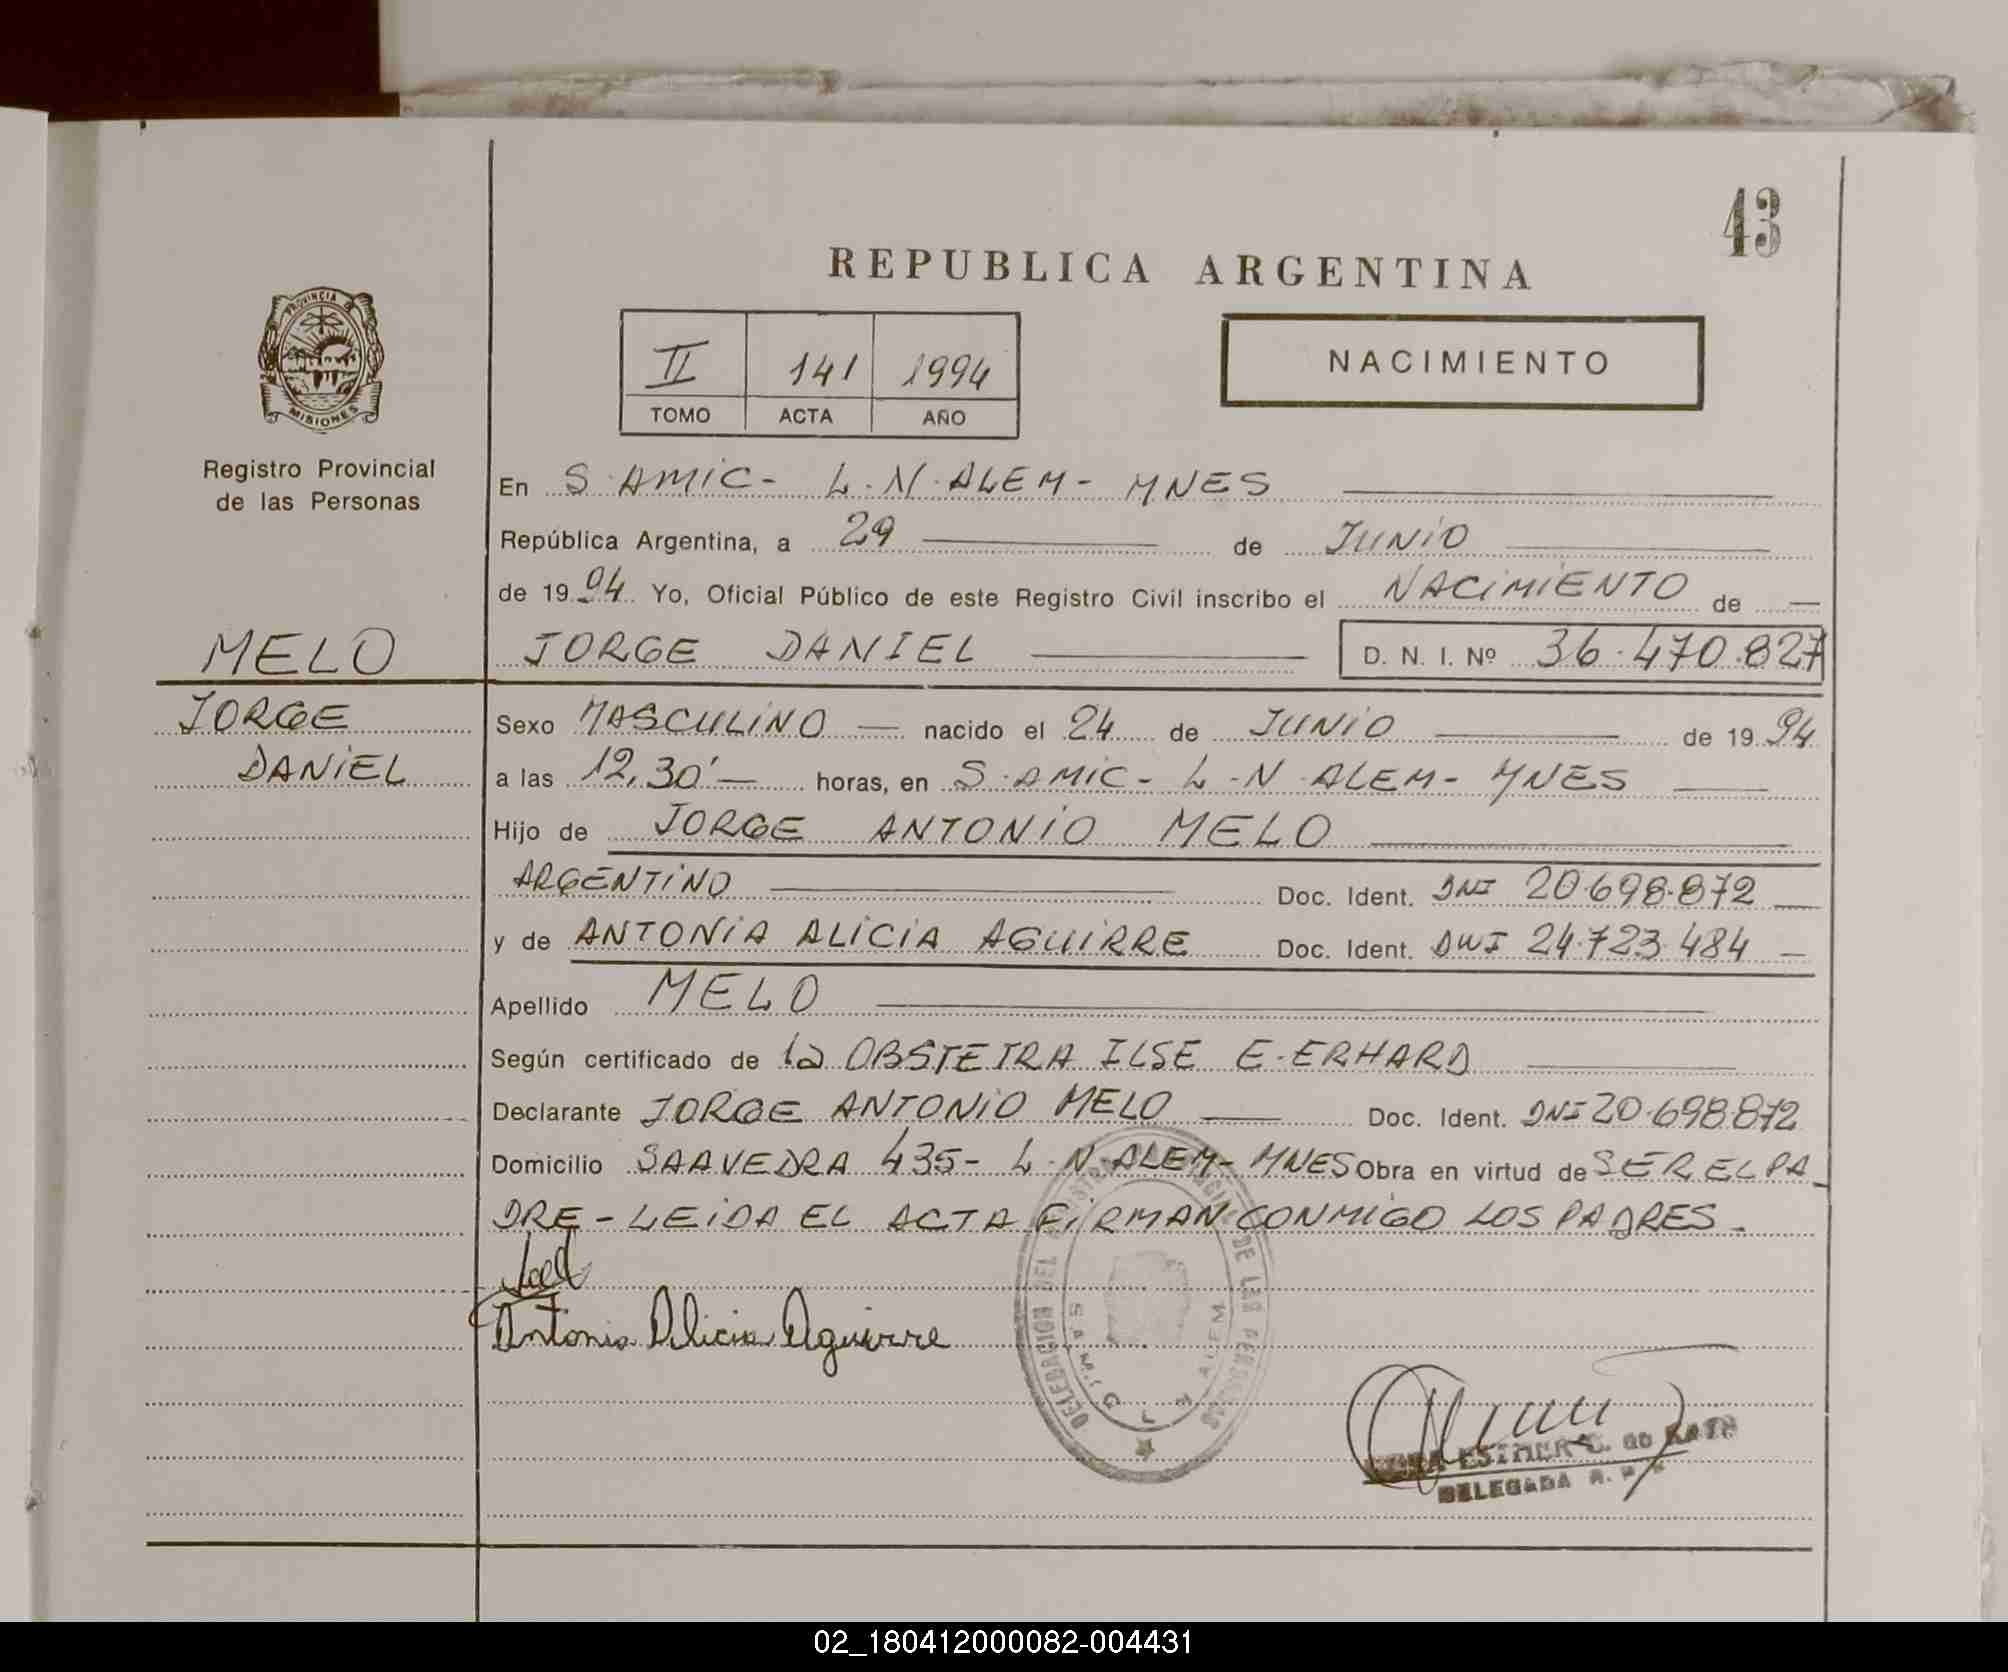 43
REPUBLICA ARGENTINA
II 141 1994
TOMO ACTA AÑO
NACIMIENTO
PROVINCIA DE
MISIONES
Registro Provincial
de las Personas
MELO
JORGE
DANIEL
En S. AMIC- L. N. ALEM- MNES
República Argentina, a 29 de JUNIO
de 1994 Yo, Oficial Público de este Registro Civil inscribo el NACIMIENTO de —
JORGE DANIEL D. N. I. Nº 36.470.827
Sexo MASCULINO — nacido el 24 de JUNIO de 1994
a las 12,30'— horas, en S. AMIC- L. N. ALEM- MNES
Hijo de JORGE ANTONIO MELO
ARGENTINO Doc. Ident. DNI 20.698.872 —
y de ANTONIA ALICIA AGUIRRE Doc. Ident. DNI 24.723.484 —
Apellido MELO
Según certificado de la OBSTETRA ILSE E. ERHARD
Declarante JORGE ANTONIO MELO — Doc. Ident. DNI 20.698.872
Domicilio SAAVEDRA 435- L. N. ALEM- MNES Obra en virtud de SER EL PA_
DRE - LEIDA EL ACTA FIRMAN CONMIGO LOS PADRES.
Antonia Alicia Aguirre
DELEGACION DEL DE LAS PERSONAS
ALEM
ESTHER
DELEGADA R. P.
02_180412000082-004431